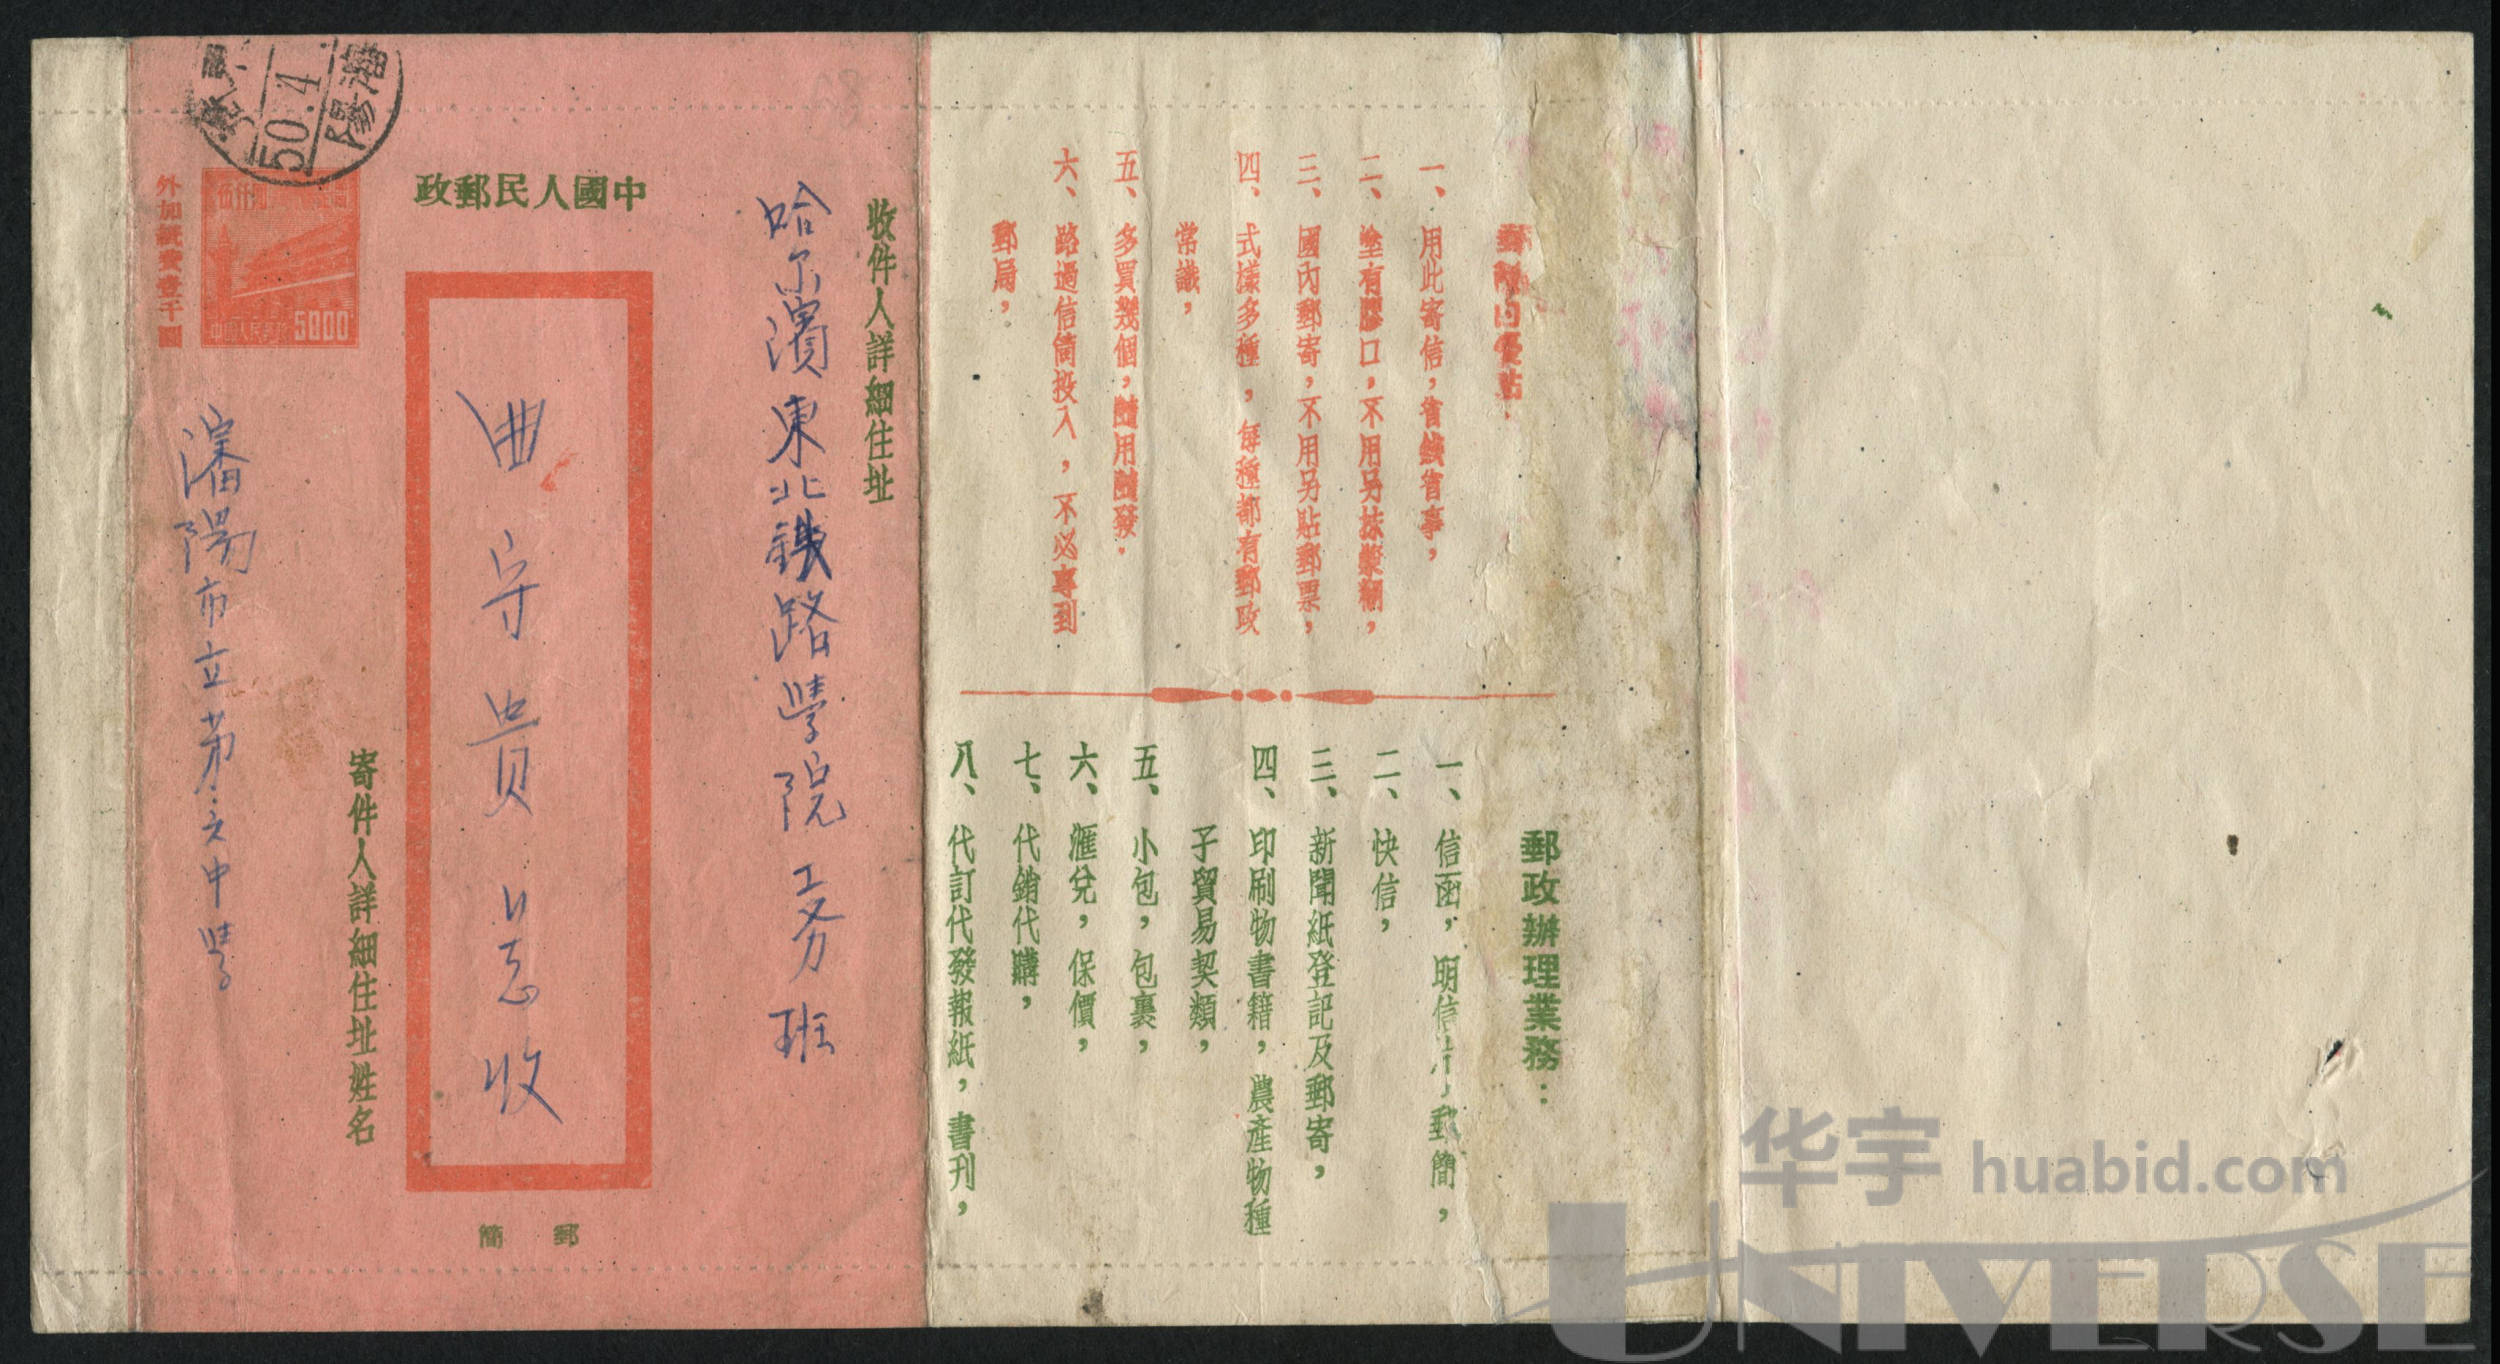 瀋陽
50.4
中國人民郵政
外加紙費壹千圓
中國人民郵政
5000
收件人詳細住址
哈尔濱東北鉄路學院工务班
曲守貴同志收
寄件人詳細住址姓名
瀋陽市立第六中學
郵簡
郵簡的優點：
一、用此寄信，省錢省事，
二、塗有膠口，不用另抹漿糊，
三、國內郵寄，不用另貼郵票，
四、式樣多種，每種都有郵政
常識，
五、多買幾個，隨用隨發。
六、路過信筒投入，不必專到
郵局，
郵政辦理業務：
一、信函，明信片，郵簡，
二、快信，
三、新聞紙登記及郵寄，
四、印刷物書籍，農產物種
子貿易契類，
五、小包，包裹，
六、匯兌，保價，
七、代銷代購，
八、代訂代發報紙，書刊，
华宇 huabid.com
UNIVERSE